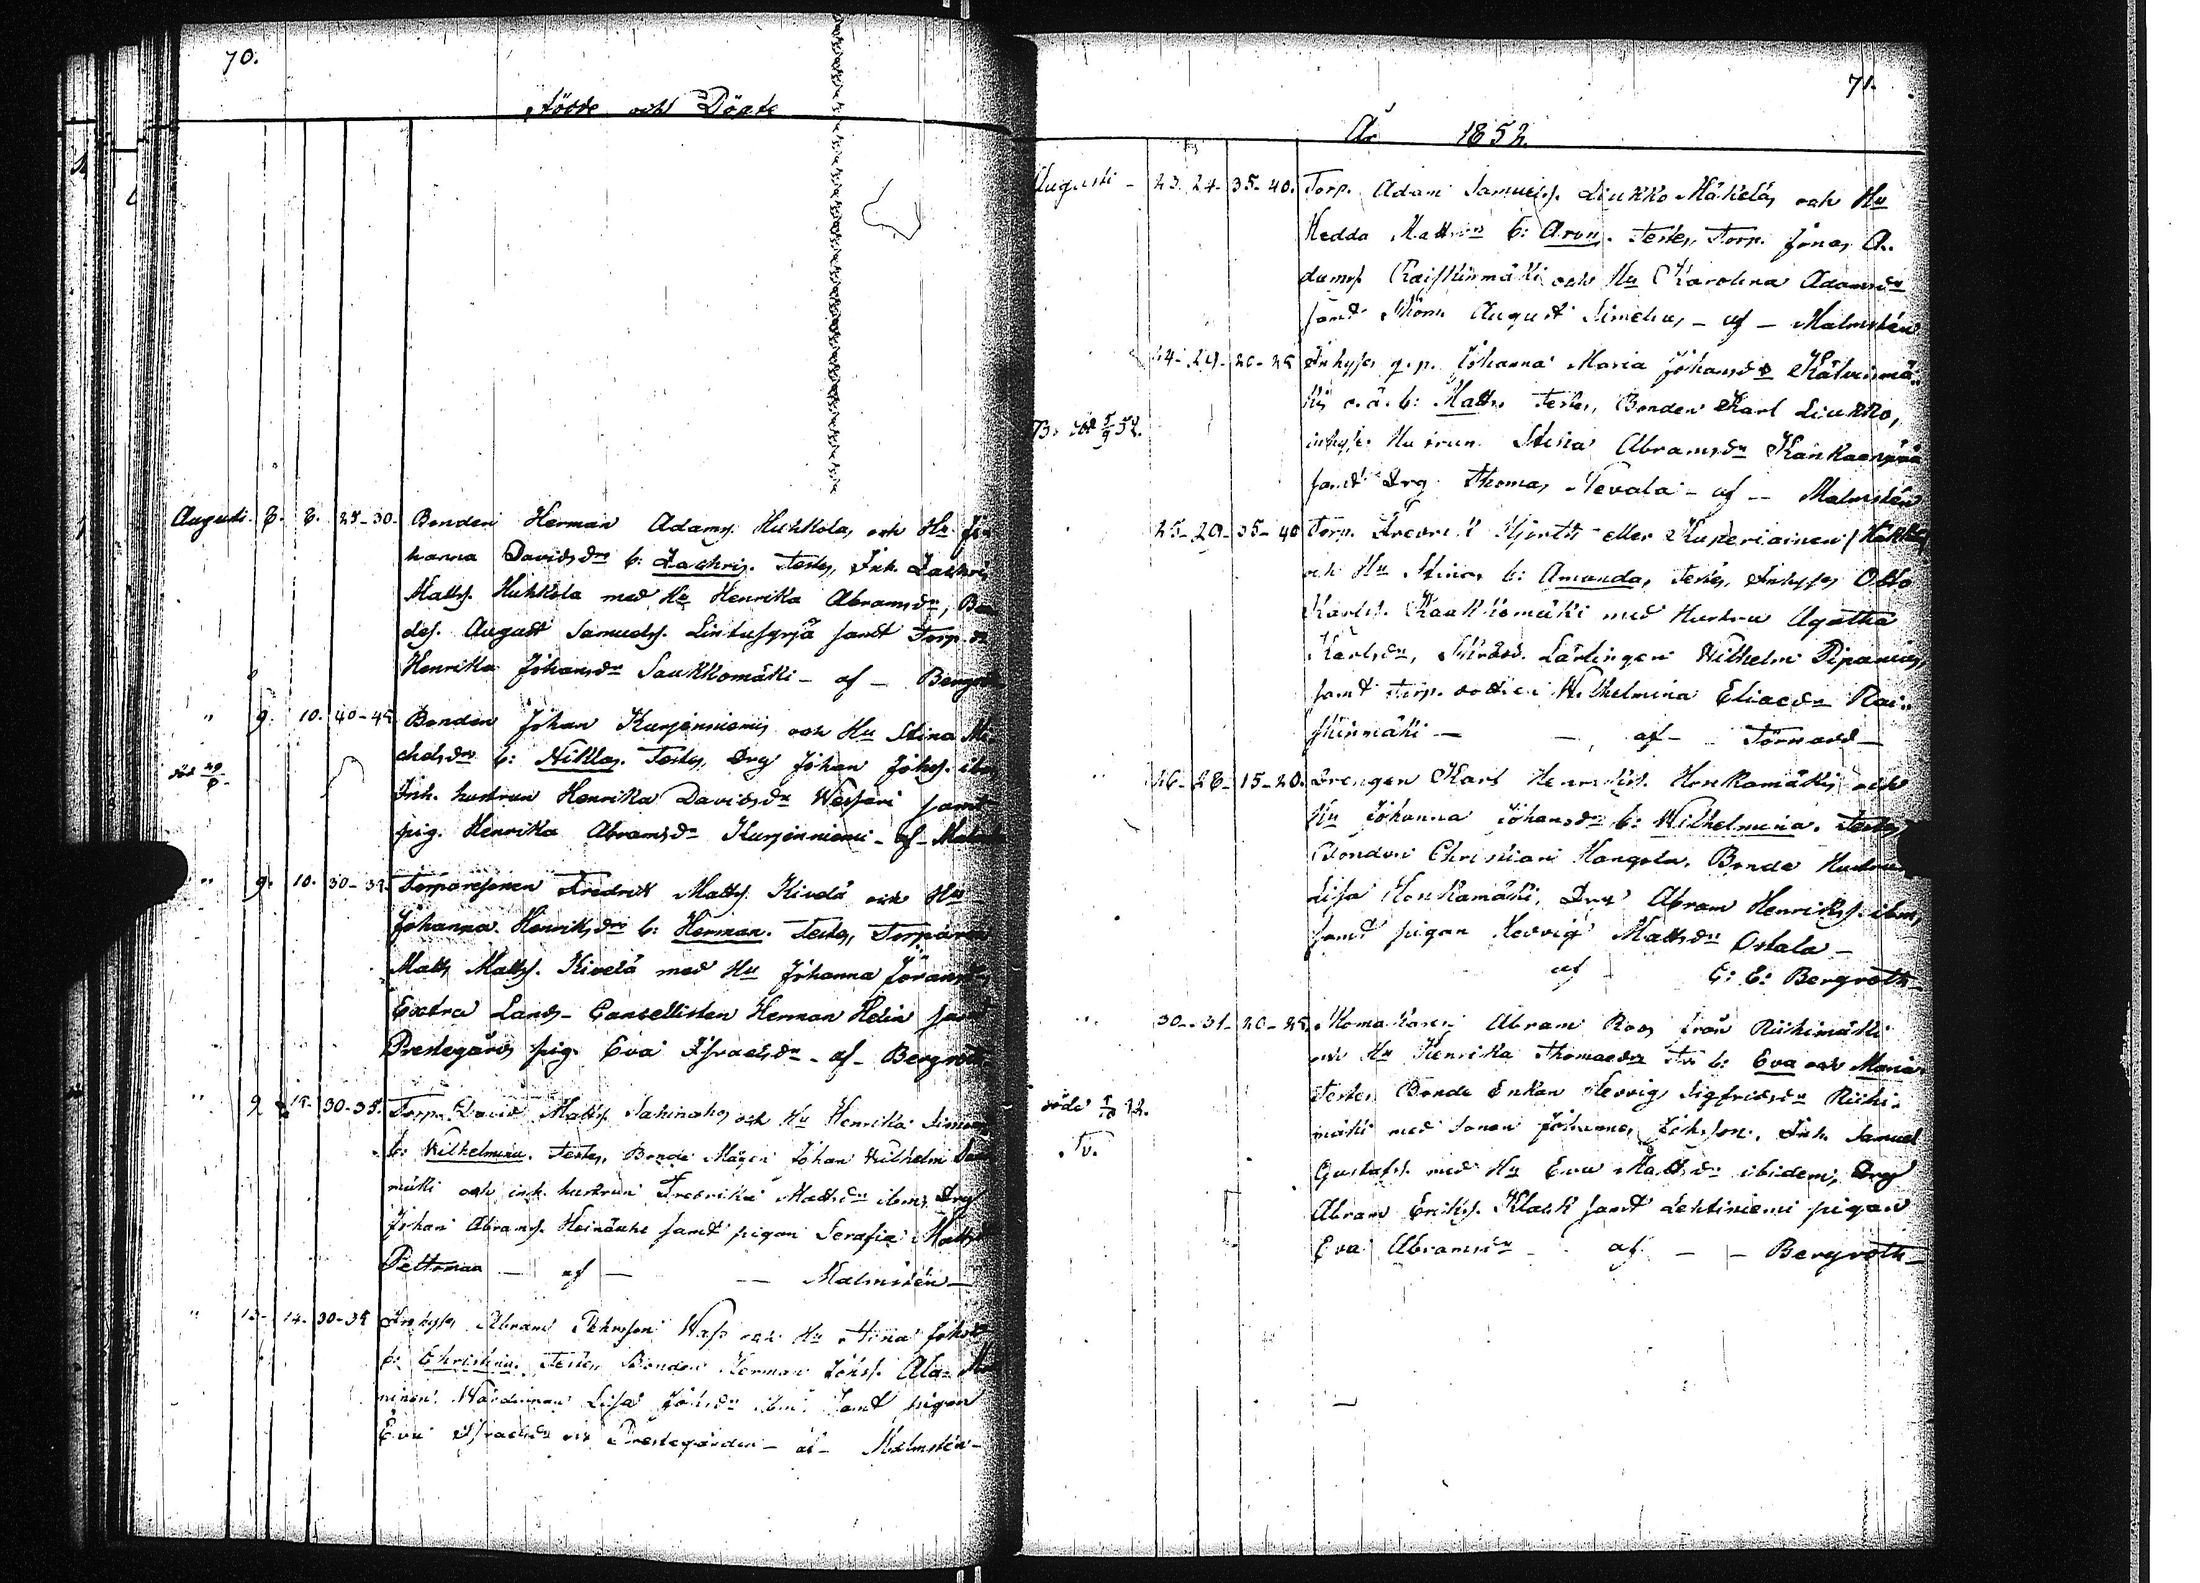 70.
Födde och Döpte
Augusti. 8. 8. 25-30. Bonden Herman Adams. Huhkola, och Hu Jo
hanna Davidsdr b: Zachris. Testes, Inh. Zachris
Matts. Huhkola med Hu Henrika Abramsdr, Bon
des. August Samuels. Lintusyrjä samt Torp. dr
Henrika Johansdr Saukkomäki - af - Bergroth
" 9. 10. 40-45 Bonden Johan Kurjenniemi och Hu Stina Mi
chelsdr b: Niklas. Testes, Drg Johan Johss. ibm
död 29/8.
Inh. hustrun Henrika Davidsdr Wessari samt
pig. Henrika Abramsdr Kurjenniemi - af - Malmstén
" 9. 10. 30-35. Torparesonen Fredrik Matts. Kivelä och Hu
Johanna Henriksdr b: Herman. Testes, Torparen
Matts Matts. Kivelä med Hu Johanna Joransdr
Extra Lands-Cansellisten Herman Helin samt
Prestegårds pig. Eva Israelsdr - af - Bergroth
" 9 14. 30-35. Torp. David Matts. och Hu Henrika Simons
b: Wilhelmina. Testes, Bonde Mågen Johan Wilhelm
mäki och inh. hustrun Fredrika Mattsdr ibm, Drg
Johan Abrams. samt pigan Serafia Matts
Peltomaa - af - - Malmstén -
" 13- 14. 30-35 Inhyses Abram Wass och Hu Stina Johsdr
b: Christina. Testes Bonden Herman Johss. Ala-
ninen. Wärdinnan Lisa Johsdr ibm. samt pigan
Eva Israelsdr vid Prestegården - af - Malmstén -
71.
År 1852.
Augusti - 23. 24. 35-40. Torp. Adam Samuels. Liukko Mäkelä, och Hu
Hedda Mattsdr b: Aron. Testes, Torp. Jonas A.
dams. Raiskinmäki och Hu Karolina Adamsdr
samt August Simelius - af - Malmstén
24- 29- 20-25 Inhyses q. p. Johanna Maria Johansdr
ki, o. ä. b: Matts. Testes, Bonden Karl Liukko,
73. död 5/9 52.
inhyse Hustrun Stina Abramsdr
samt Drg. Thomas Nevala - af - Malmstén
25- 29- 35-40 Torp. Fredrik Hjerth eller
och Hu Stina b: Amanda, Testes, Inhyses Otto
Karls. Kaukkomäki med Hustru Agatha
Karlsdr, Lärlingen Wilhelm Pipanius,
samt Torp. dottren Wilhelmina Eliaedr Rai-
skinmäki - - af - Törnudd -
" 26- 28- 15-20. Drengen Karl Henrikss. Honkamäki och
Hu Johanna Johansdr b: Wilhelmina. Testes,
Bonden Christian Hangola. Bonde Hustrun
Lisa Honkamäki, Drg Abram Henrikss. ibm,
samt pigan Hedvig Mattsdr Ostala -
af C: E: Bergroth -
" 30- 31- 20-25. Skomakaren Abram Roos från Riihimäki
och Hu Henrika Thomaedr Tv b: Eva och Maria.
Testes Bonde Enkan Hedvig Sigfridsdr Riihi-
döde 1/9 52.
Tv.
mäki med Sonen Johannes Johsson, Inh. Samuel
Gustafs. med Hu Eva Mattsdr ibidem, Drg
Abram Eriks. Klack samt Lehtiniemi pigan
Eva Abramsdr - af - - Bergroth -